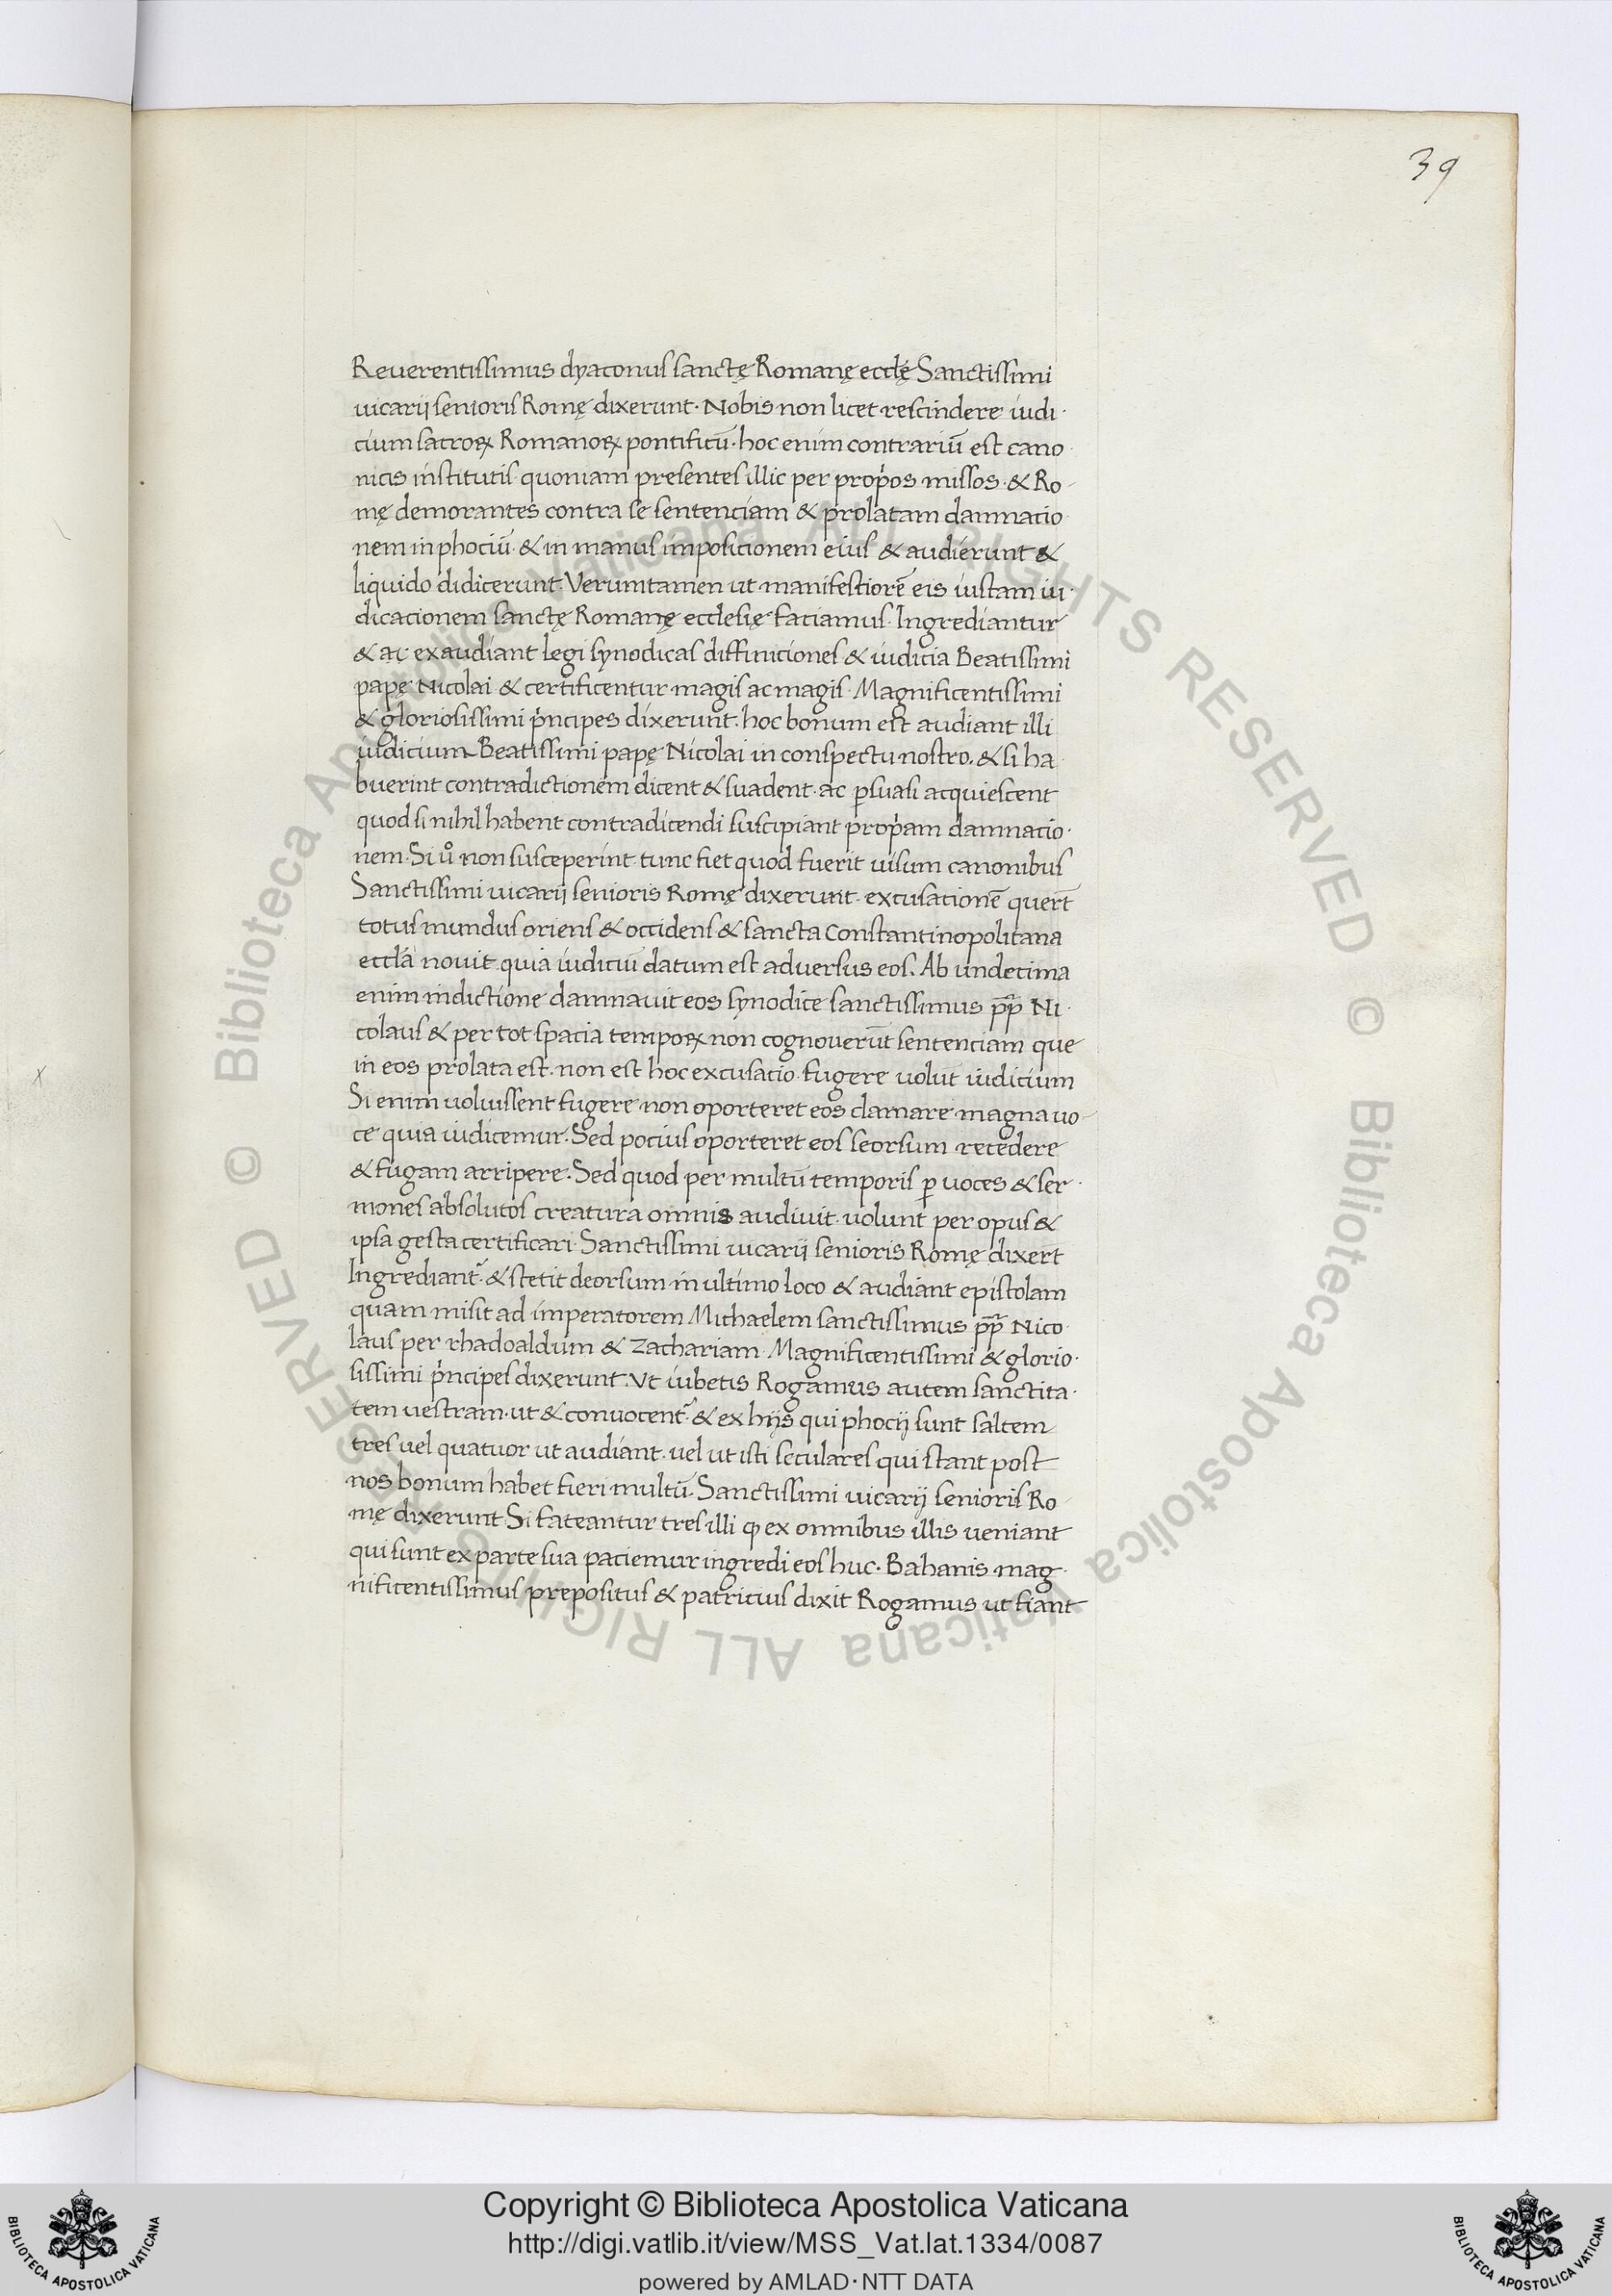 39
Reuerentissimus dyaconus sanctę Romanę eccl̄ę Sanctissimi
uicarij senioris Romę dixerunt· Nobis non licet rescindere iudi·
cium sacroꝝ Romanoꝝ pontificū· hoc enim contrariū est cano·
nicis institutis· quoniam presentes illic per prop̍os missos· & Ro-
mę demorantes contra se sentenciam & prolatam damnacio
nem in phociū· & in manus imposicionem eius & audierunt &
liquido didicerunt· Verumtamen ut manifestiorē eis iustam iu·
dicacionem sanctę Romanę ecclesię faciamus· Ingrediantur
& ac exaudiant legi synodicas diffiniciones & iudicia Beatissimi
papę Nicolai & certificentur magis ac magis· Magnificentissimi
& gloriosissimi p̍ncipes dixerunt· hoc bonum est audiant illi
iudicium Beatissimi papę Nicolai in conspectu nostro· & si ha
buerint contradictionem dicent & suadent· ac ꝑsuasi acquiescent
quod si nihil habent contradicendi suscipiant prop̍am damnacio·
nem· Si uͦ non susceperint tunc fiet quod fuerit uisum canonibus
Sanctissimi uicarij senioris Romę dixerunt· excusationē querūt
totus mundus oriens & occidens & sancta Constantinopolitana
eccl̄a nouit quia iudiciū datum est aduersus eos· Ab undecima
enim indictione damnauit eos synodice sanctissimus p̄p̄ Ni·
colaus & per tot spacia tempoꝝ non cognouerūt sentenciam que
in eos prolata est· non est hoc excusatio· fugere uolūt iudicium
Si enim uoluissent fugere non oporteret eos clamare magna uo-
ce quia iudicemur· Sed pocius oporteret eos seorsum recedere
& fugam arripere· Sed quod per multū temporis ꝑ uoces & ser·
mones absolutos creatura omnis audiuit· uolunt per opus &
ipsa gesta certificari· Sanctissimi uicarij senioris Romę dixerūt
Ingrediant᷑ & stetit deorsum in ultimo loco & audiant epistolam
quam misit ad imperatorem Michaelem sanctissimus p̄p̄ Nico
laus per rhadoaldum & Zachariam· Magnificentissimi & glorio·
sissimi p̍ncipes dixerunt· Vt iubetis Rogamus autem sanctita·
tem uestram· ut & conuocent᷑ & ex hijs qui phocij sunt saltem
tres uel quatuor ut audiant· uel ut isti seculares qui stant post
nos bonum habet fieri multū· Sanctissimi uicarij senioris Ro
mę dixerunt· Si fateantur tres illi ꝙ ex omnibus illis ueniant
qui sunt ex parte sua paciemur ingredi eos huc· Bahanis mag·
nificentissimus prepositus & patricius dixit Rogamus ut fiant
© Biblioteca Apostolica Vaticana ALL RIGHTS RESERVED
© Biblioteca Apostolica Vaticana ALL RIGHTS RESERVED
Copyright © Biblioteca Apostolica Vaticana
http://digi.vatlib.it/view/MSS_Vat.lat.1334/0087
powered by AMLAD·NTT DATA
BIBLIOTECA APOSTOLICA VATICANA
BIBLIOTECA APOSTOLICA VATICANA